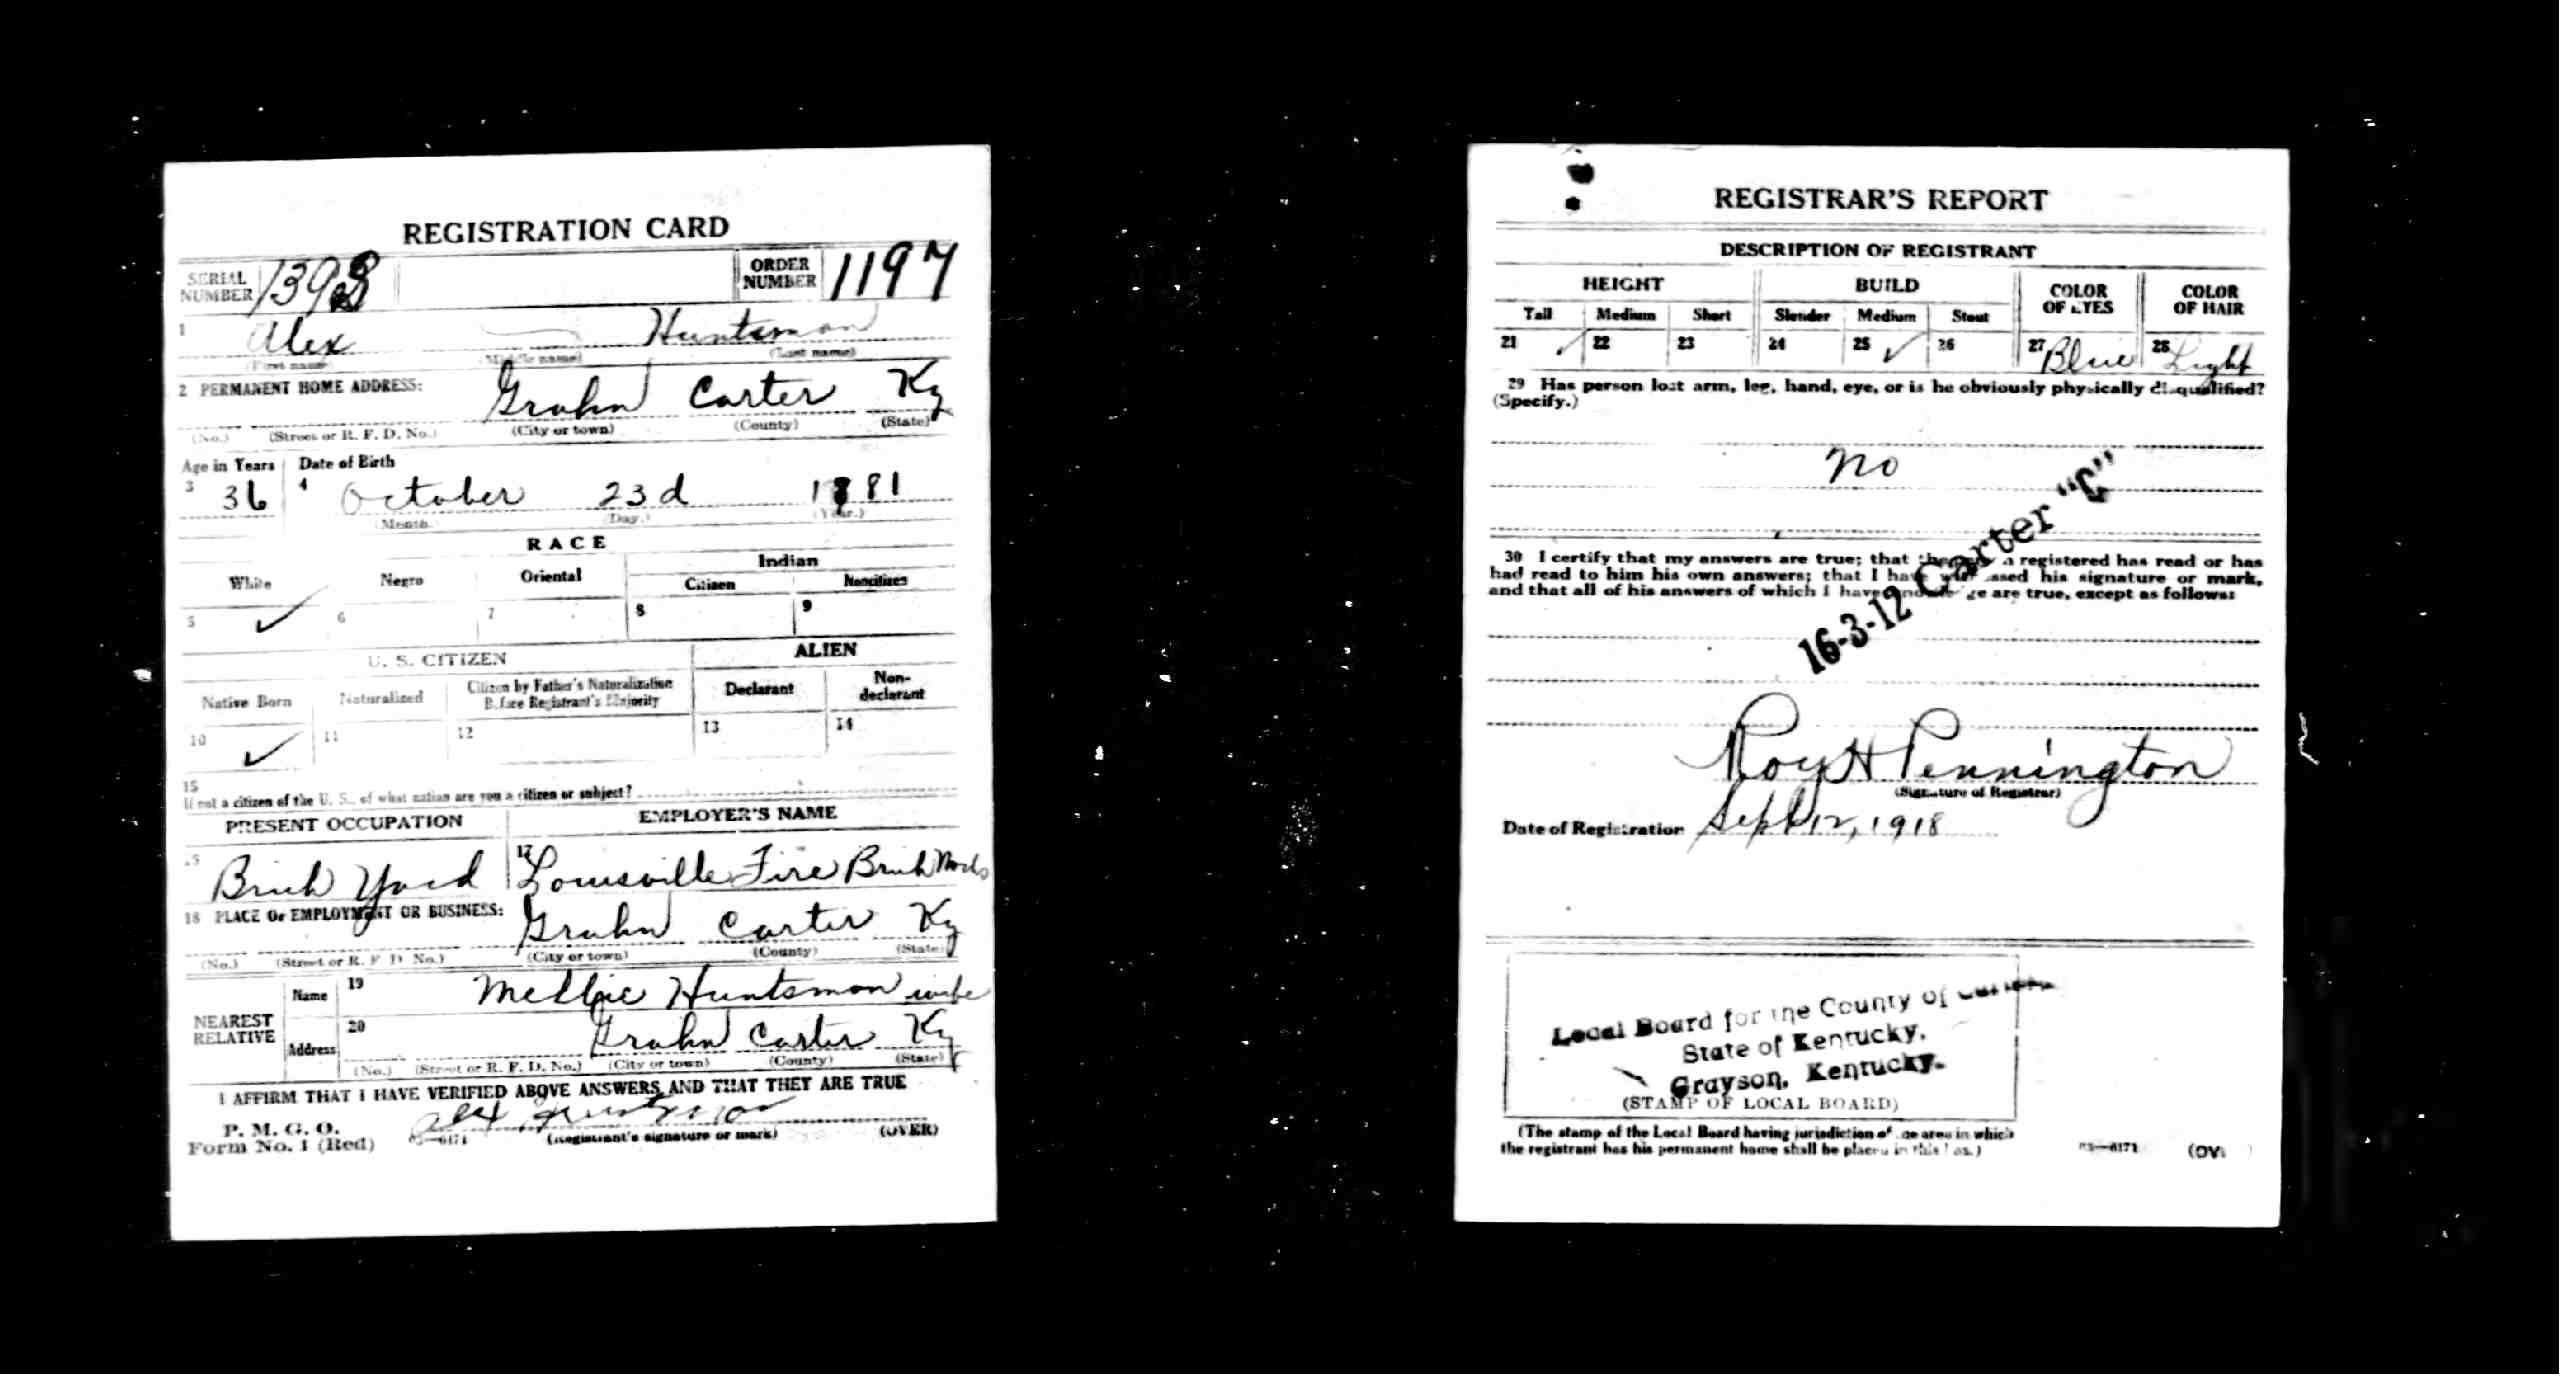 REGISTRATION CARD
SERIAL NUMBER 1398 ORDER NUMBER 1197
1 Alex Huntsman
(First name) (Middle name) (Last name)
2 PERMANENT HOME ADDRESS:
Grahn Carter Ky
(No.) (Street or R. F. D. No.) (City or town) (County) (State)
Age in Years Date of Birth
3 36 4 October 23d 1881
(Month.) (Day.) (Year.)
RACE
White Negro Oriental Indian
Citizen Noncitizen
5 ✓ 6 7 8 9
U. S. CITIZEN ALIEN
Native Born Naturalized Citizen by Father's Naturalization Before Registrant's Majority Declarant Non-declarant
10 ✓ 11 12 13 14
15
If not a citizen of the U. S., of what nation are you a citizen or subject?
PRESENT OCCUPATION EMPLOYER'S NAME
Brick Yard 17 Louisville Fire Brick
18 PLACE OF EMPLOYMENT OR BUSINESS:
Grahn Carter Ky
(No.) (Street or R. F. D. No.) (City or town) (County) (State)
NEAREST RELATIVE
Name 19 Huntsman wife
Address 20 Grahn Carter Ky
(No.) (Street or R. F. D. No.) (City or town) (County) (State)
I AFFIRM THAT I HAVE VERIFIED ABOVE ANSWERS AND THAT THEY ARE TRUE
P. M. G. O.
Form No. 1 (Red) 03—6171 Alex Huntsman
(Registrant's signature or mark) (OVER)
REGISTRAR'S REPORT
DESCRIPTION OF REGISTRANT
HEIGHT BUILD COLOR OF EYES COLOR OF HAIR
Tall Medium Short Slender Medium Stout
21 ✓ 22 23 24 25 ✓ 26 27 Blue 28 Light
29 Has person lost arm, leg, hand, eye, or is he obviously physically disqualified?
(Specify.)
No
30 I certify that my answers are true; that the person registered has read or has
had read to him his own answers; that I have witnessed his signature or mark,
and that all of his answers of which I have knowledge are true, except as follows:
16-3-12 Carter "C"
Roy H Pennington
(Signature of Registrar)
Date of Registration Sept 12, 1918
Local Board for the County of Carter,
State of Kentucky,
Grayson, Kentucky.
(STAMP OF LOCAL BOARD)
(The stamp of the Local Board having jurisdiction of the area in which
the registrant has his permanent home shall be placed in this box.)
03—6171 (OV